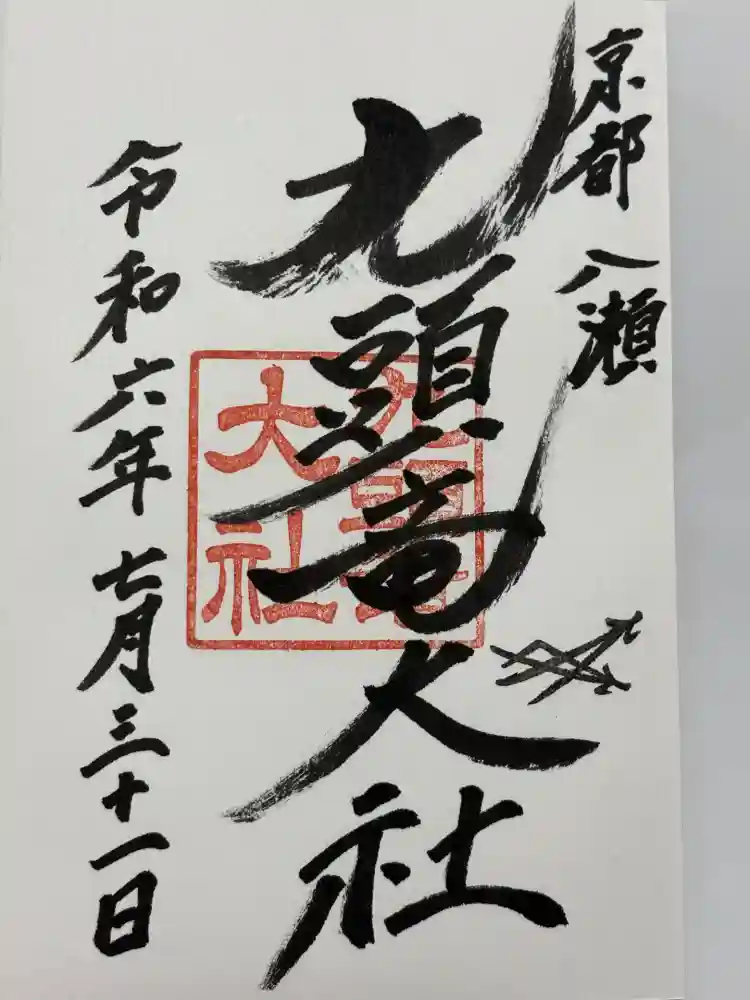 京都 八瀬
九頭竜大社
九頭竜
大社
令和六年 七月三十一日